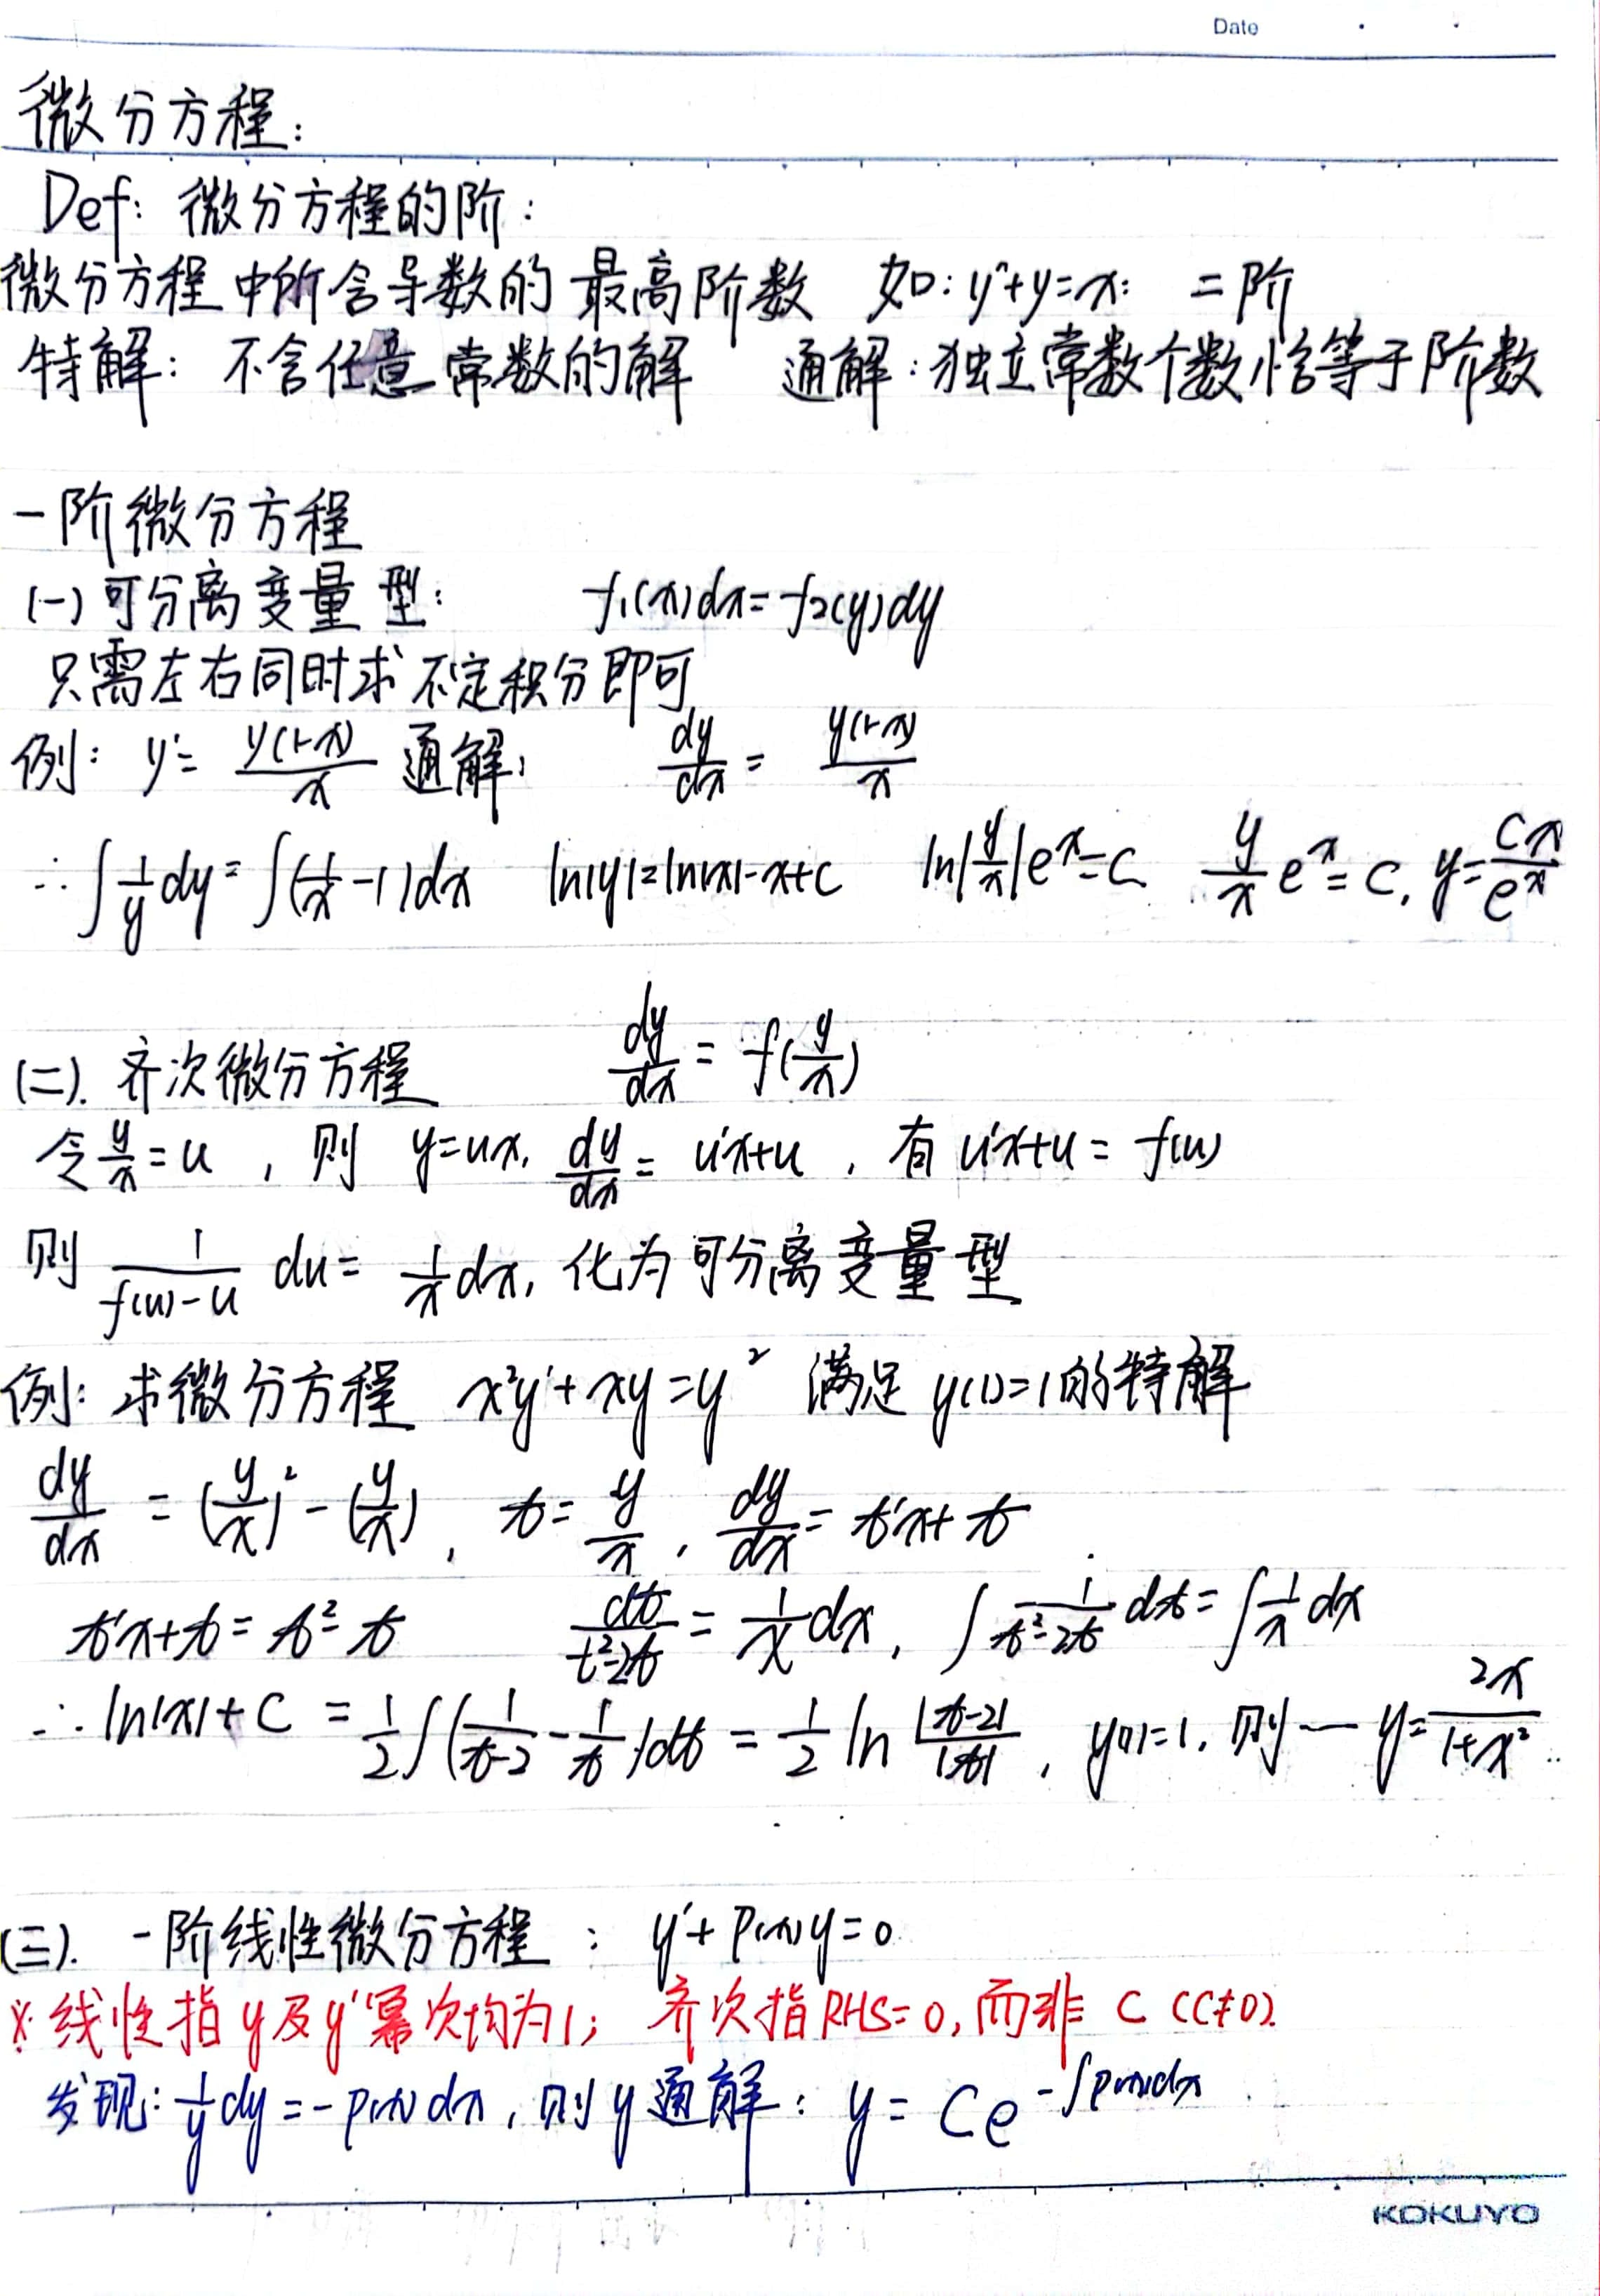 Date
微分方程:
Def: 微分方程的阶:
微分方程中所含导数的最高阶数 如: y''+y=x: 二阶
特解: 不含任意常数的解 通解: 独立常数个数恰等于阶数
一阶微分方程
(一) 可分离变量型: f₁(x)dx=f₂(y)dy
只需左右同时求不定积分即可
例: y'= y(1-x)/x 通解: dy/dx = y(1-x)/x
∴ ∫1/y dy = ∫(1/x -1)dx ln|y|=ln|x|-x+C ln|y/x|eˣ=C y/x eˣ=C, y=Cx/eˣ
(二). 齐次微分方程 dy/dx = f(y/x)
令 y/x = u , 则 y=ux, dy/dx = u'x+u , 有 u'x+u = f(u)
则 1/(f(u)-u) du = 1/x dx, 化为可分离变量型
例: 求微分方程 x²y'+xy=y² 满足 y(1)=1的特解
dy/dx = (y/x)² - (y/x) , t= y/x , dy/dx = t'x+t
t'x+t = t²-t dt/(t²-2t) = 1/x dx, ∫ 1/(t²-2t) dt = ∫1/x dx
∴ ln|x|+C = 1/2 ∫(1/(t-2) - 1/t)dt = 1/2 ln |t-2|/|t| , y(1)=1, 则 — y= 2x/(1+x²)
(三). 一阶线性微分方程 : y'+P(x)y=0
※ 线性指 y 及 y' 幂次均为1; 齐次指 RHS=0, 而非 C (C≠0)
发现: 1/y dy = -P(x)dx , 则 y 通解: y = Ce^(-∫P(x)dx)
KOKUYO